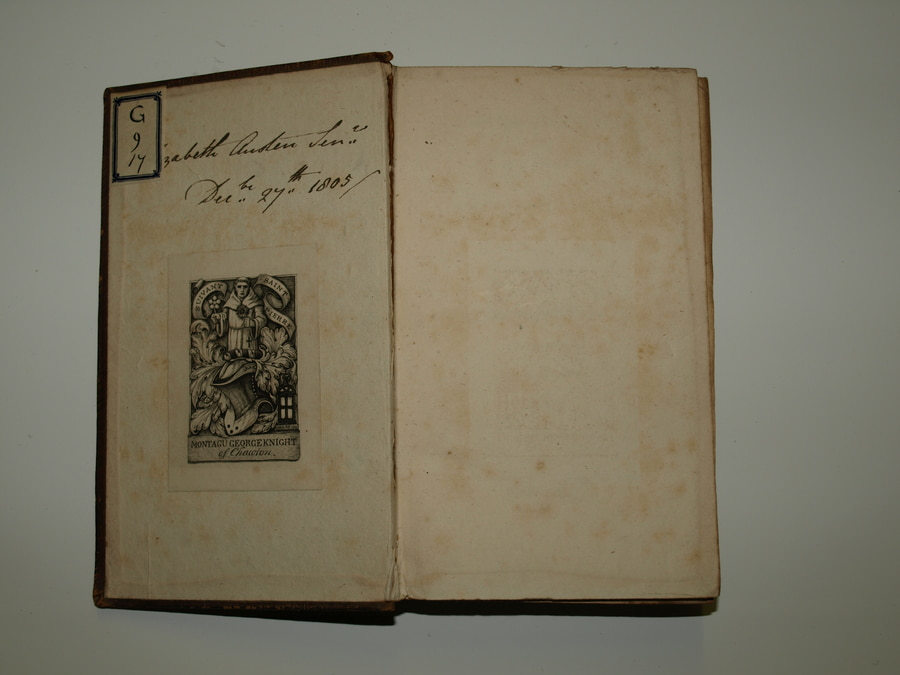 G
9
17
zabeth Austen Senr
Decbr 27th 1805/
SUIVANT SAINT PIERRE
MONTAGU GEORGE KNIGHT
of Chawton.